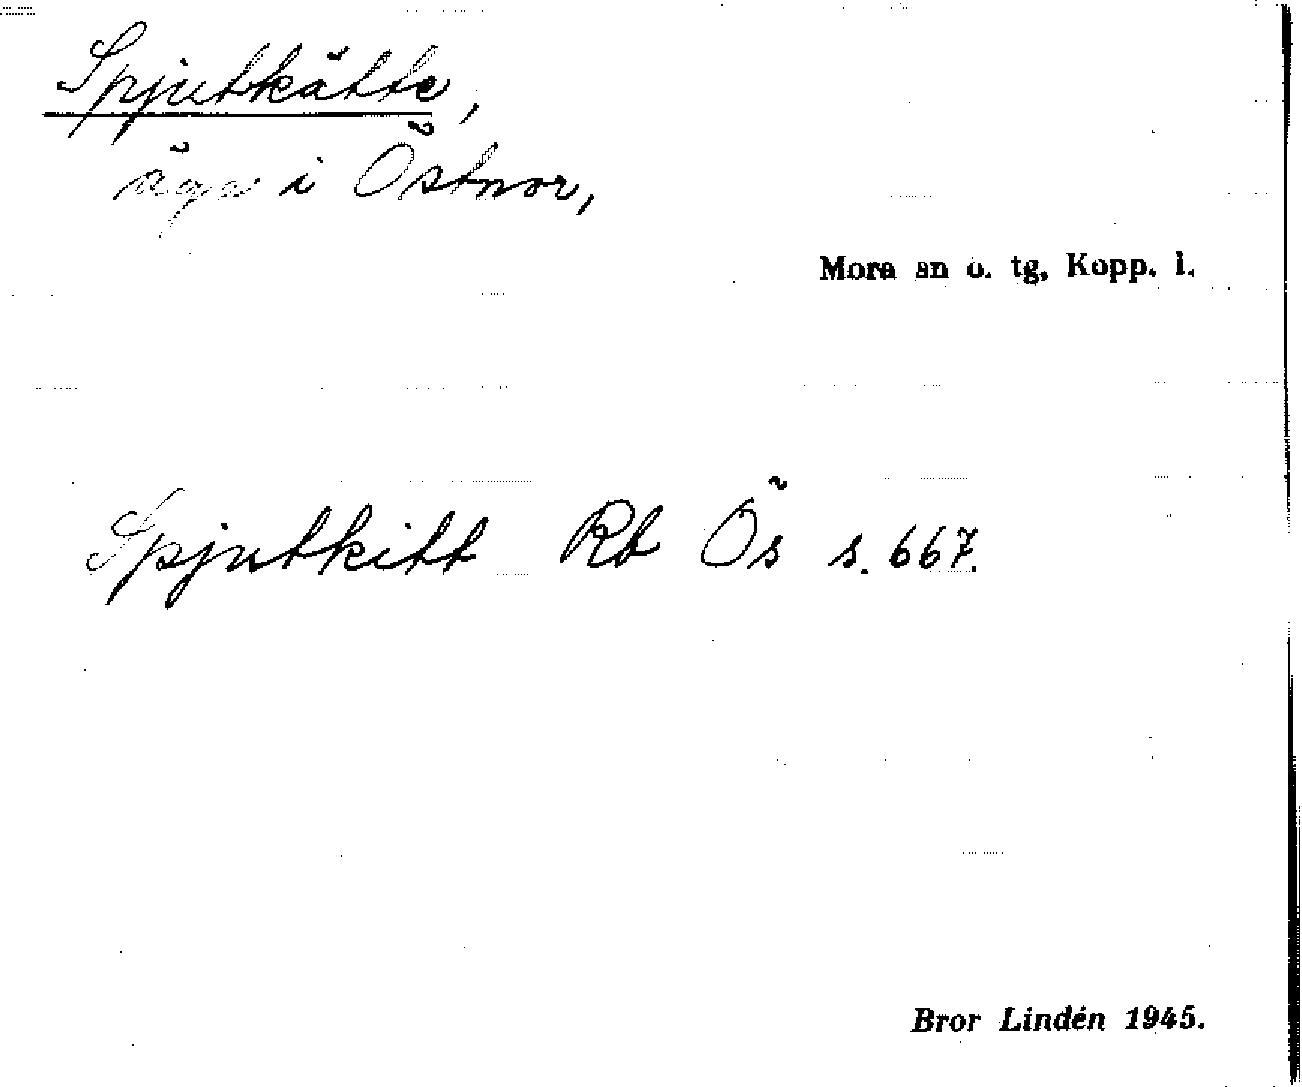 Spjutkätte,
äga i Östnor,
Mora sn o. tg, Kopp. l.
Spjutkitt Rb Ös s. 667.
Bror Lindén 1945.